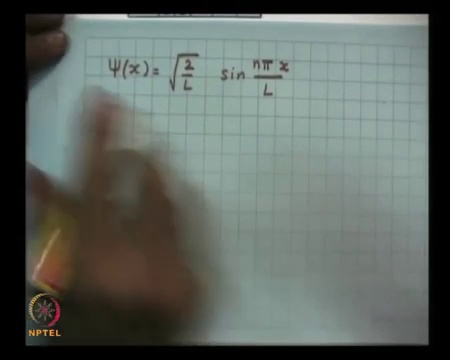 Ψ(x) = √(2/L) sin nπx/L
NPTEL